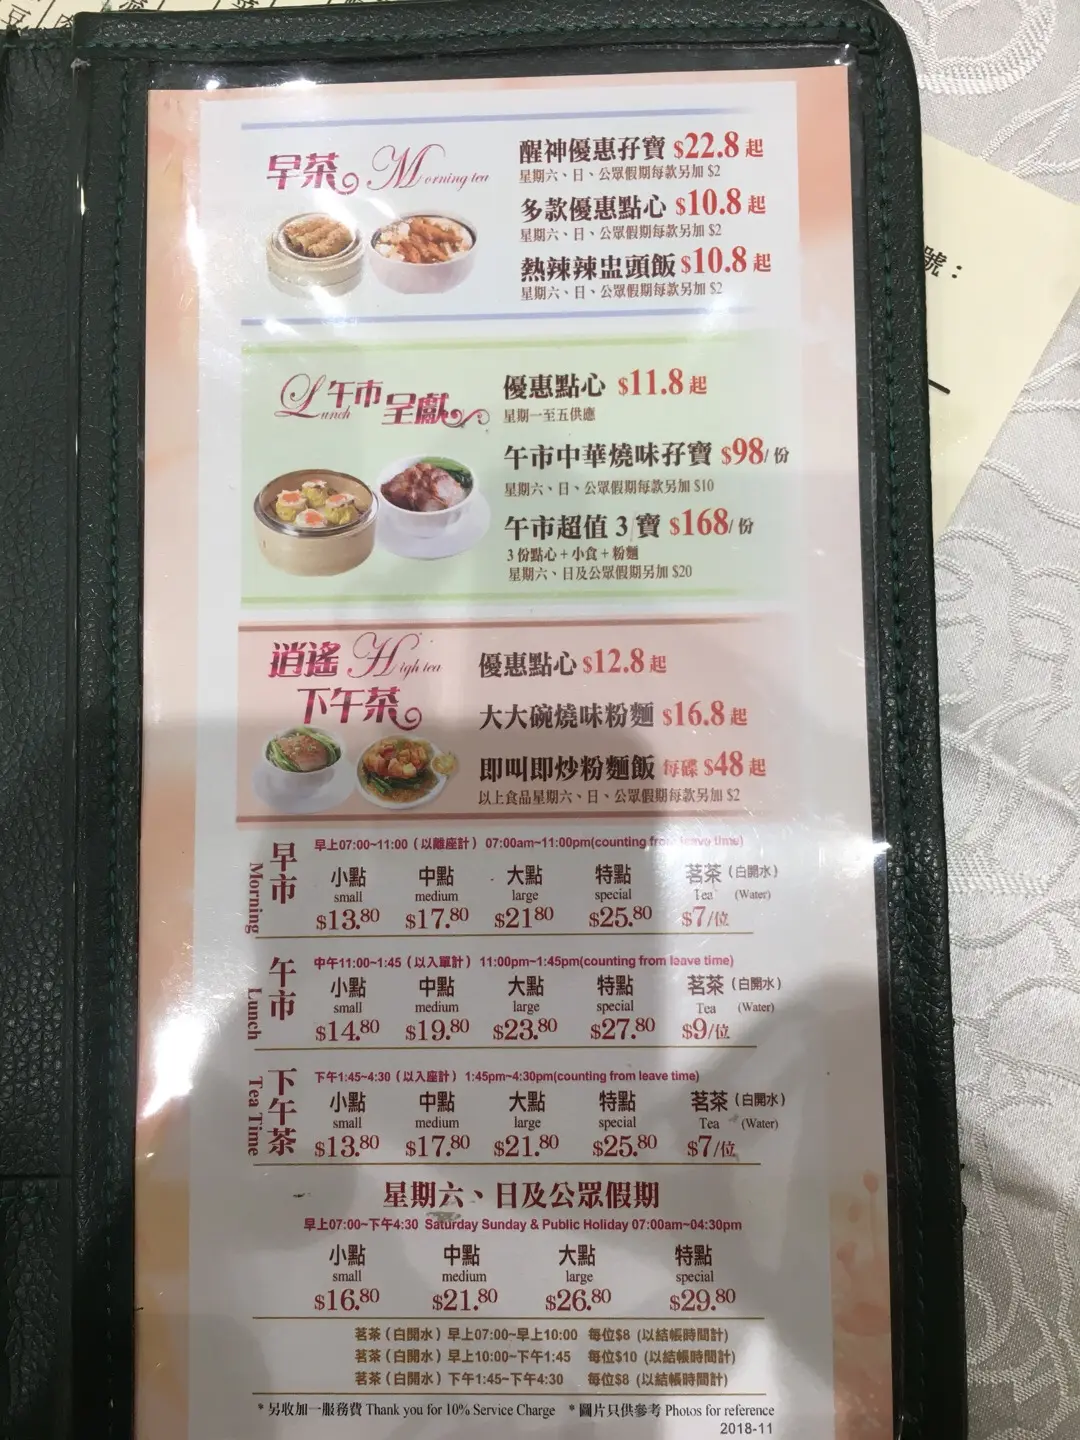 號：
早茶 Morning tea
醒神優惠孖寶 $22.8 起
星期六、日、公眾假期每款另加 $2
多款優惠點心 $10.8 起
星期六、日、公眾假期每款另加 $2
熱辣辣盅頭飯 $10.8 起
星期六、日、公眾假期每款另加 $2
Lunch 午市呈獻
優惠點心 $11.8 起
星期一至五供應
午市中華燒味孖寶 $98/份
星期六、日、公眾假期每款另加 $10
午市超值 3 寶 $168/份
3 份點心 + 小食 + 粉麵
星期六、日及公眾假期另加 $20
逍遙 High tea
下午茶
優惠點心 $12.8 起
大大碗燒味粉麵 $16.8 起
即叫即炒粉麵飯 每碟 $48 起
以上食品星期六、日、公眾假期每款另加 $2
早市 Morning
早上07:00~11:00（以離座計） 07:00am~11:00pm(counting from leave time)
小點 中點 大點 特點 茗茶（白開水）
small medium large special Tea (Water)
$13.80 $17.80 $21.80 $25.80 $7/位
午市 Lunch
中午11:00~1:45（以入單計） 11:00pm~1:45pm(counting from leave time)
小點 中點 大點 特點 茗茶（白開水）
small medium large special Tea (Water)
$14.80 $19.80 $23.80 $27.80 $9/位
下午茶 Tea Time
下午1:45~4:30（以入座計） 1:45pm~4:30pm(counting from leave time)
小點 中點 大點 特點 茗茶（白開水）
small medium large special Tea (Water)
$13.80 $17.80 $21.80 $25.80 $7/位
星期六、日及公眾假期
早上07:00~下午4:30 Saturday Sunday & Public Holiday 07:00am~04:30pm
小點 中點 大點 特點
small medium large special
$16.80 $21.80 $26.80 $29.80
茗茶（白開水）早上07:00~早上10:00 每位$8 (以結帳時間計)
茗茶（白開水）早上10:00~下午1:45 每位$10 (以結帳時間計)
茗茶（白開水）下午1:45~下午4:30 每位$8 (以結帳時間計)
* 另收加一服務費 Thank you for 10% Service Charge * 圖片只供參考 Photos for reference
2018-11